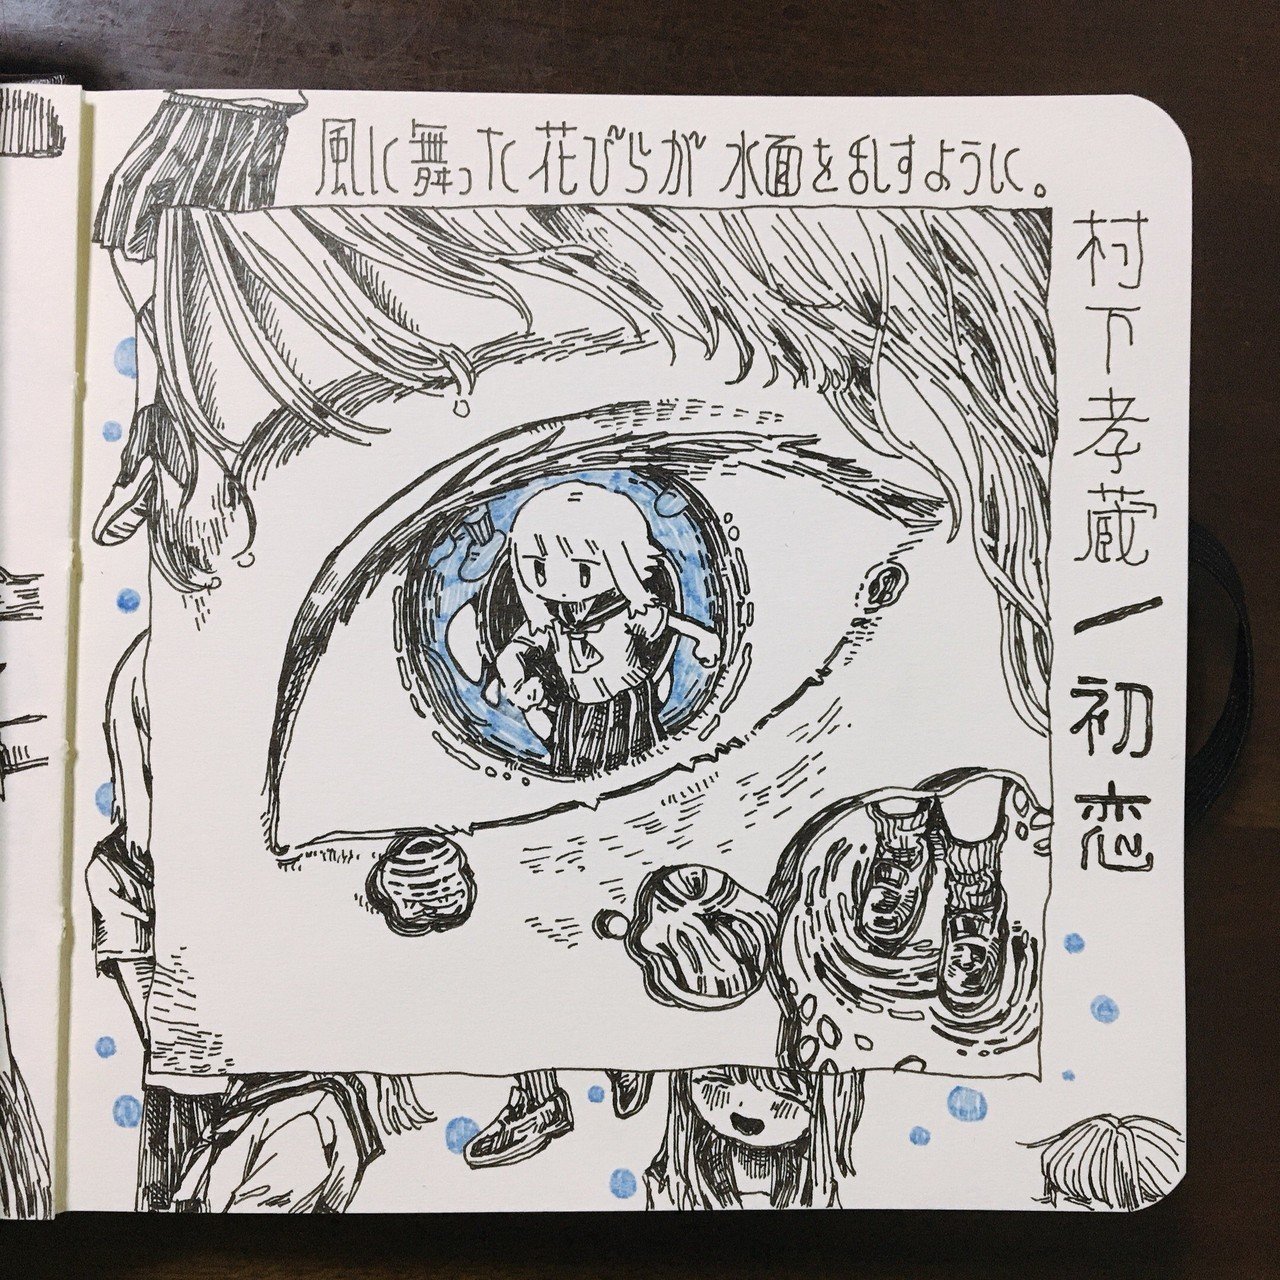 風に舞った花びらが 水面を乱すように。
村下孝蔵/初恋